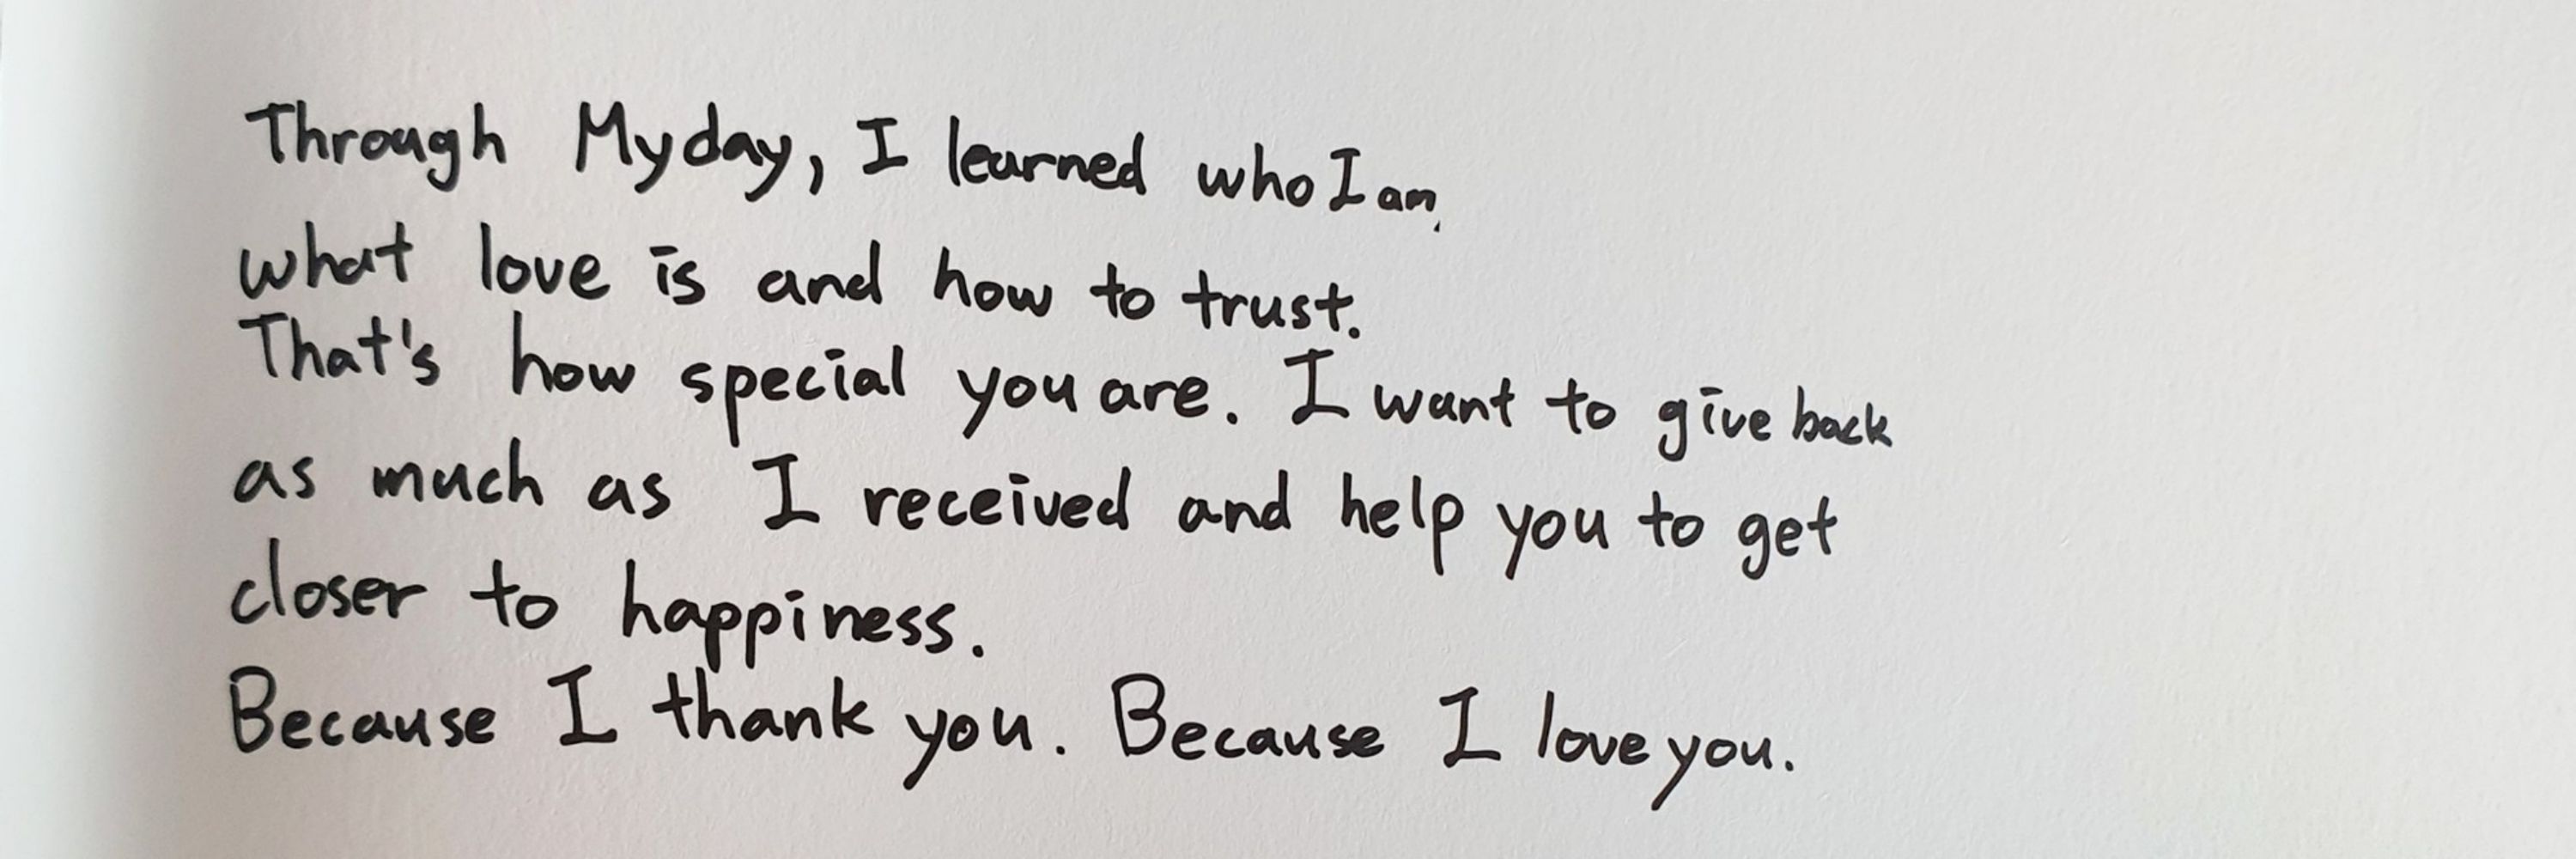 Through Myday, I learned who I am,
what love is and how to trust.
That's how special you are. I want to give back
as much as I received and help you to get
closer to happiness.
Because I thank you. Because I love you.